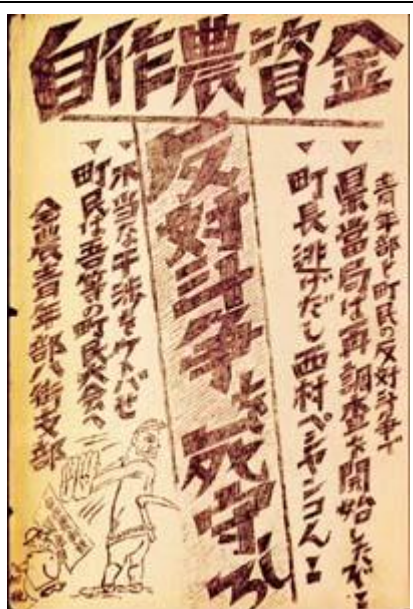 自作農資金
青年部と町民の反対斗争で
県当局は再調査を開始したぞ!
町長逃げだし西村ペシャンコ人!
反対斗争を死守しろ
不当な干渉をケトバせ
町民は吾等の町民大会へ
全農青年部八街支部